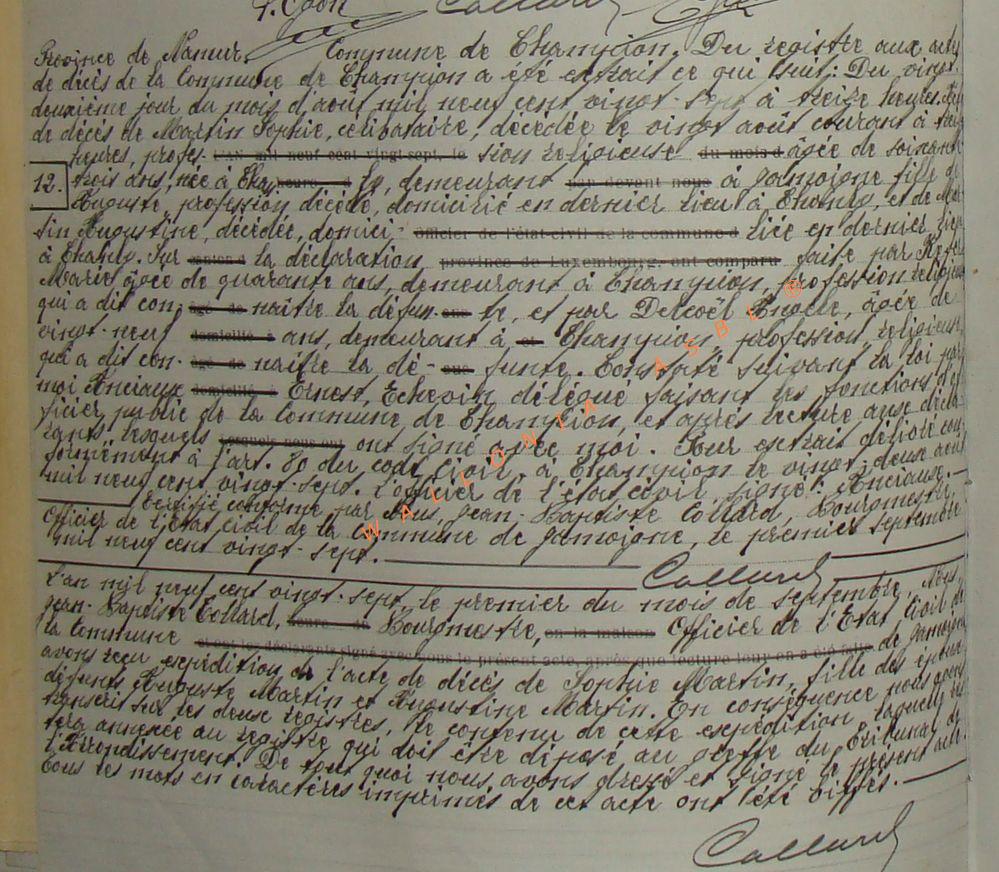 Province de Namur. Commune de Champion. Du registre aux actes
de décès de la Commune de Champion a été extrait ce qui suit: Du vingt-
deuxième jour du mois d'août mil neuf cent vingt-sept à treize heures. Acte
de décès de Martin Sophie, célibataire, décédée le vingt août courant à
heures, profes- L'AN mil neuf cent vingt-sept, le sion religieuse du mois d âgée de soixante
12. trois ans, née à heure d demeurant par devant nous à Jamoigne fille de
Auguste, profession décédé, domicilié en dernier lieu à et de Mar-
tin Augustine, décédée, domici- officier de l'état-civil de la commune d liée en dernier lieu
à Sur canton d la déclaration province de Luxembourg, ont comparu faite par
Marie âgée de quarante ans, demeurant à Champion, profession religieuse
qui a dit con- âgé de naitre la défun- que te, et par Delcoël Angèle, âgée de
vingt-neuf domicilié à ans, demeurant à et Champion, profession religieuse,
qui a dit con- âgé de naitre la dé- que funte. Constaté suivant la loi par
moi Anciaux domicilié à Ernest, Echevin délégué faisant les fonctions d'of-
ficier public de la Commune de Champion, et après lecture aux décla-
rants, lesquels lesquels nous ont ont signé avec moi. Pour extrait délivré con-
formément à l'art. 80 du code Civil, à Champion le vingt-deux août
mil neuf cent vingt-sept. L'officier de l'état civil, signé: Anciaux.
Certifié conforme par Nous, Jean-Baptiste Collard, Bourgmestre,
Officier de l'Etat Civil de la Commune de Jamoigne, le premier septembre
mil neuf cent vingt-sept.
Collard
L'an mil neuf cent vingt-sept, le premier du mois de septembre, Nous,
Jean-Baptiste Collard, heure de Bourgmestre, en la maison Officier de l'Etat Civil de
la Commune et ont les déclarants signé avec nous le présent acte, après que lecture leur en a été faite de Jamoigne
avons reçu expédition de l'acte de décès de Sophie Martin, fille des époux
défunts Auguste Martin et Augustine Martin. En conséquence nous avons
transcrit sur les deux registres, le contenu de cette expédition laquelle res-
tera annexée au registre qui doit être déposé au greffe du Tribunal de
l'Arrondissement. De tout quoi nous avons dressé et signé le présent acte.
Tous les mots en caractères imprimés de cet acte ont été biffés.
Collard
WALLONIA ASBL @